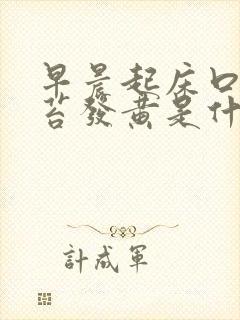 早晨起床口
苔發黃是什
計成軍